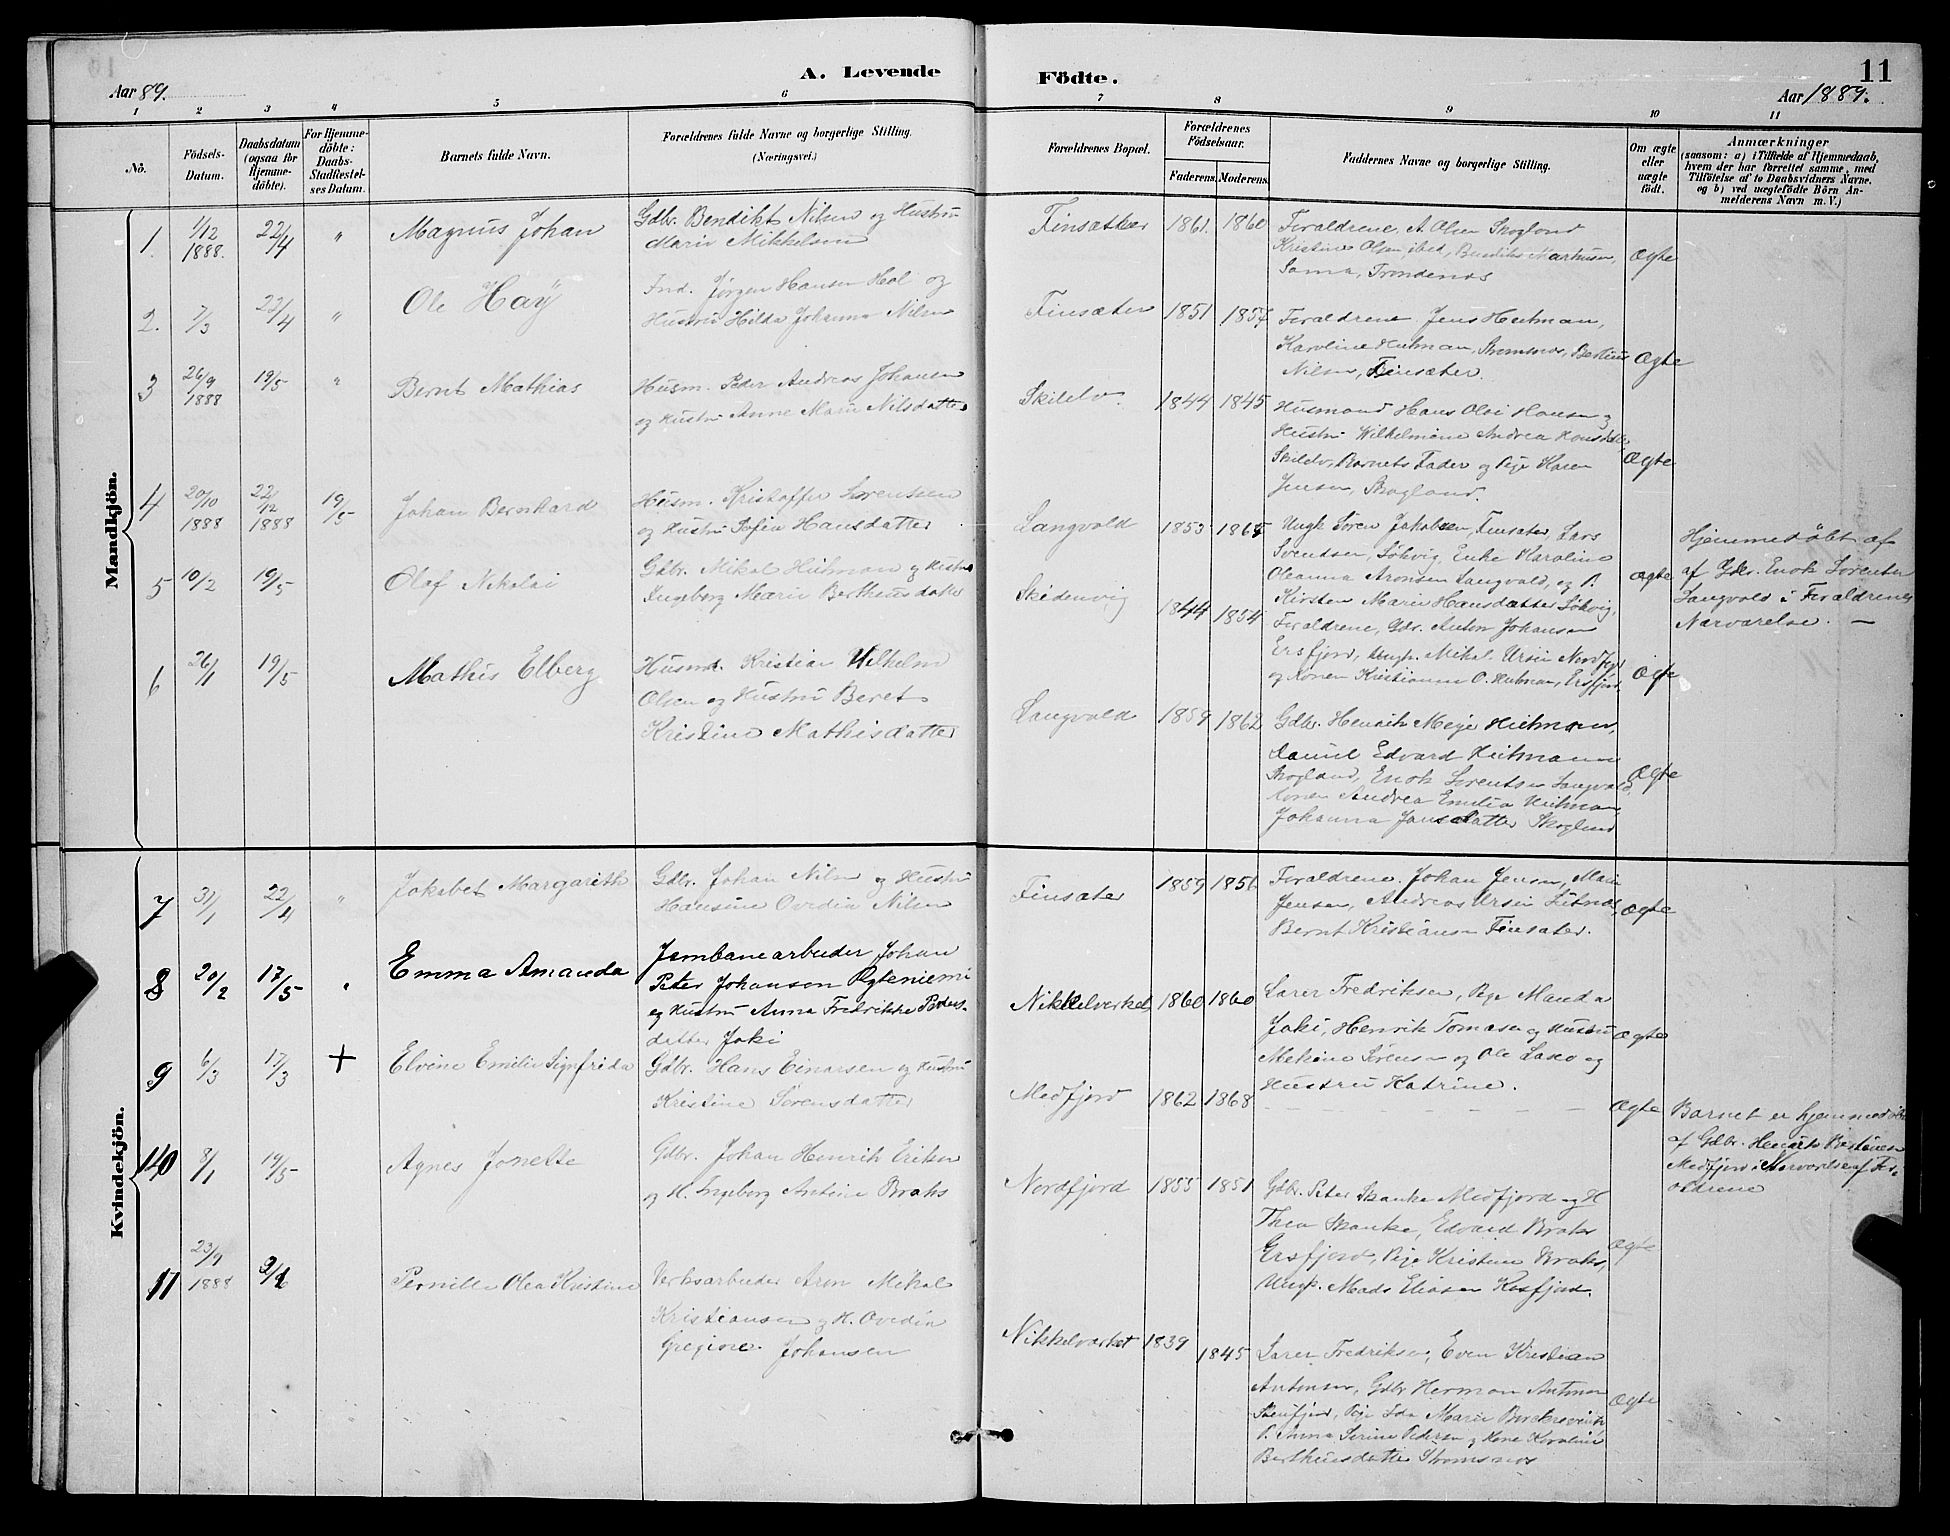 A. Levende Födte.
11
Aar 89.
Aar 1889.
1 2 3 4 5 6 7 8 9 10 11
No.
Födsels-Datum.
Daabsdatum (ogsaa for Hjemmedöbte).
For Hjemmedöbte: Daabs-Stadfæstelses Datum.
Barnets fulde Navn.
Forældrenes fulde Navne og borgerlige Stilling. (Næringsvei.)
Forældrenes Bopæl.
Forældrenes Födselsaar.
Faderens. Moderens.
Faddernes Navne og borgerlige Stilling.
Om ægte eller uægte födt.
Anmærkninger
(saasom: a) i Tilfælde af Hjemmedaab, hvem der har forrettet samme, med Tilföielse af to Daabsvidners Navne, og b) ved uægtefödte Börn Anmelderens Navn m. V.)
Mandkjön.
1. 1/12 1888. 22/4 " Magnus Johan
Gdbr. Bendikt Nilsen og Hustru
Marie Mikkelsen
Finsæther 1861. 1860
Forældrene, A Olsen Skogland
Kristine Olsen ibid, Bendikt Markusen,
Sama, Trondenæs
Ægte
2. 7/3 22/4 " Ole Haÿ
Ind. Jørgen Hansen Hol og
Hustru Hilda Johanna Nilsen
Finsæter 1851 1857
Forældrene Jens Heitman,
Karoline Heitman, Strømnæs, Bertius
Nilsen, Finsæter.
Ægte
3 26/9 1888 19/5 " Bernt Mathias
Husm. Peder Andreas Johansen
og Hustru Anne Marie Nilsdatter
Skilelv. 1844 1845
Husmand Hans Olai Hansen og
Hustru Wilhelmine Andrea Hansdatter
Skilelv, Barnets Fader og Pige Karen
Jensen, Skogland.
Ægte
4 20/10 1888 22/12 1888 19/5 Johan Bernhard
Husm. Kristoffer Sørentsen
og Hustru Sofia Hansdatter
Langvold 1853 1865
Ungk Søren Jakobsen, Finsæter, Lars
Svendsen, Søhvig, Enke Karoline
Oleanna Aronsen Langvold, og P.
Kirsten Marie Hansdatter Søhvig.
Ægte
Hjemmedöbt af
af Gdbr. Enok Sørentsen
Langvold i Forældrenes
Nærværelse. —
5 10/2 19/5 Olaf Nikolai
Gdbr. Mikal Heitman og Hustru
Ingeborg Marie Bertheusdatter
Skidenvig 1844 1854
Forældrene, Gdr. Anton Johansen
Ersfjord, Ungk. Mikal Ursin Nordfjord
og Konen Kristianne O. Heitman, Ersfjord
Ægte
6 26/1 19/5 Mathis Elberg
Husmd. Kristian Wilhelm
Olsen og Hustru Beret
Kristine Mathisdatter
Langvold 1859 1862
Gdbr. Henrik Meje Heitmann,
Daniel Edvard Heitmann
Skogland, Enok Sørentsen Langvold,
Konen Andrea Emilia Heitman,
Johanna Jonsdatter Skogland
Ægte
Kvindekjön.
7 31/1 22/4 " Jakobet Margarith
Gdbr. Johan Nilsen og Hustru
Hansine Ovedia Nilsen
Finsæter 1859 1856
Forældrene, Johan Jensen, Marie
Jensen, Andreas Ursin
Bernt Kristiansen Finsæter.
Ægte
8 20/2 17/5 " Emma Amanda
Jernbanearbeider Johan
Peter Johanson Øgteniemi
og Hustru Anna Fredrikke Peders-
datter Joki
Nikkelverket 1860 1860
Larer Fredriksen, Pige Manda
Joki, Henrik Tomasen og Hustru
Mekine Sørensen og Ole Lasco og
Hustru Katrine.
Ægte
9 6/3 17/3 + Elvine Emilie Signfrida
Gdbr. Hans Einarsen og Hustru
Kristine Sørensdatter
Medfjord 1862 1868
Ægte
Barnet er hjemmedöbt
af Gdbr. Henrik
Medfjord i Nærværelse af For-
ældrene
10 8/1 19/5 Agnes Jonette
Gdbr. Johan Henrik Eriksen
og H. Ingeborg Antine Braks
Nordfjord 1855 1851
Gdbr. Peter Skanke Medfjord og H
Thea Skanke, Edvard Braks
Ersfjord, Pige Kristine Braks,
Ungk. Mads Eliasen
Ægte
11 23/9 1888 2/6 Pernille Olea Kristine
Verksarbeider Aron Mikal
Kristiansen og H. Ovedia
Gregine. Johansen
Nikkelverket 1839 1845
Larer Fredriksen, Even Kristian
Antonsen, Gdbr Herman Antonsen
Pige Ida Marie
P. Anna Serine Pedersen og Kone Karoline
Bertheusdatter Strømsnæs
Ægte